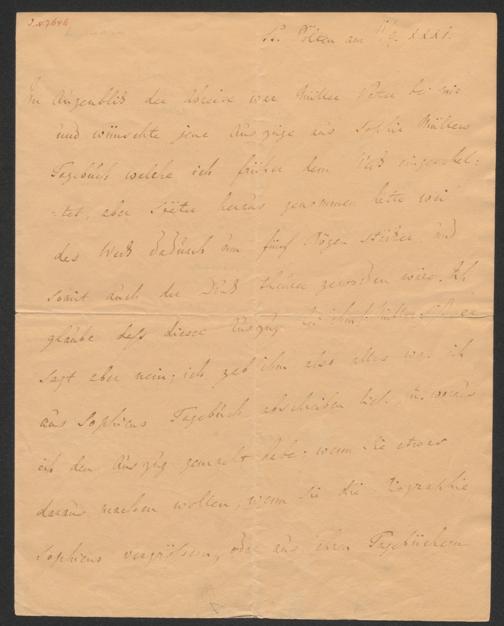 St. Pölten am
Im Augenblick der Abreise war Müller Vater bei mir
und wünschte jene Auszüge aus Sophie Müllers
Tagebuch welche ich früher dem Werk eingeschal-
-tet, aber später heraus genommen hatte weil
das Werk dadurch um fünf Bögen stärker, und
somit auch der Druck theurer geworden wäre. Ich
glaube dass dieser Auszug
sagt aber nein; ich gab ihm also alles was ich
aus Sophiens Tagebuch abschreiben ließ, u. woraus
ich den Auszug gemacht habe; wenn Sie etwas
daraus machen wollen, wenn Sie die Biographie
Sophiens vergrößern, oder aus ihren Tagebüchern